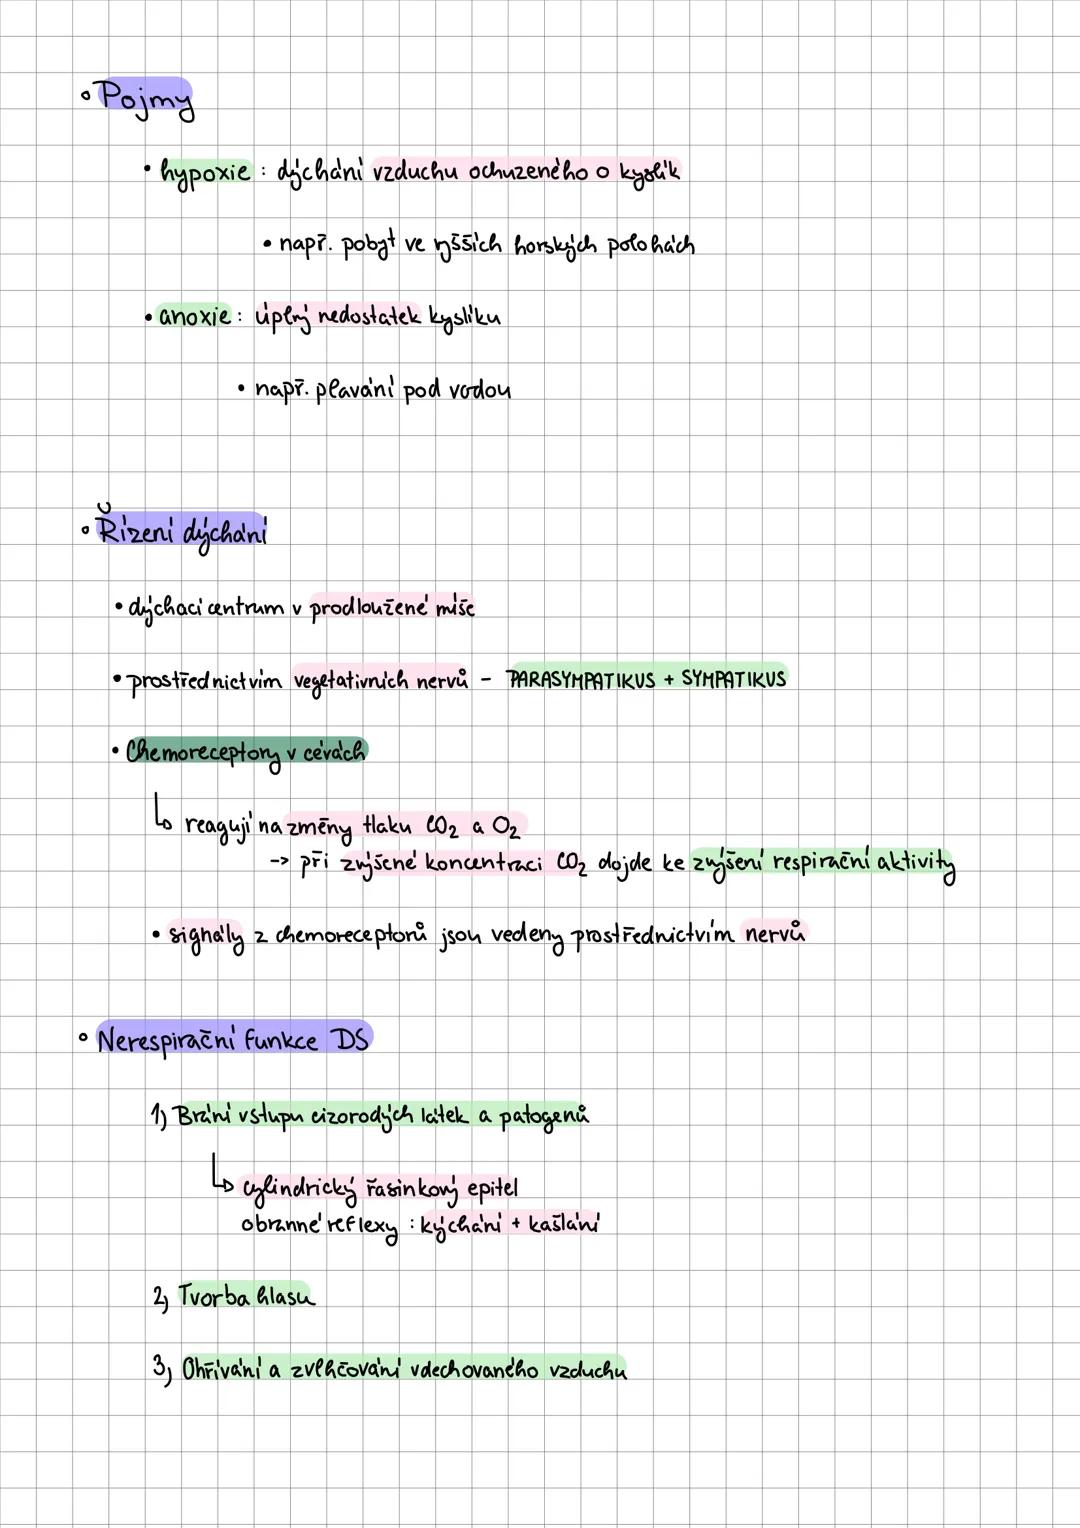 • Pojmy
• hypoxie : dýchání vzduchu ochuzeného o kyslík
• např. pobyt ve vyšších horských polohách
• anoxie : úplný nedostatek kyslíku
• např. plavání pod vodou
• Řízení dýchání
• dýchací centrum v prodloužené míše
• prostřednictvím vegetativních nervů - PARASYMPATIKUS + SYMPATIKUS
• Chemoreceptory v cévách
↳ reagují na změny tlaku CO₂ a O₂
-> při zvýšené koncentraci CO₂ dojde ke zvýšení respirační aktivity
• signály z chemoreceptorů jsou vedeny prostřednictvím nervů
• Nerespirační funkce DS
1) Brání vstupu cizorodých látek a patogenů
↳ cylindrický řasinkový epitel
obranné reflexy : kýchání + kašlání
2) Tvorba hlasu
3) Ohřívání a zvlhčování vdechovaného vzduchu